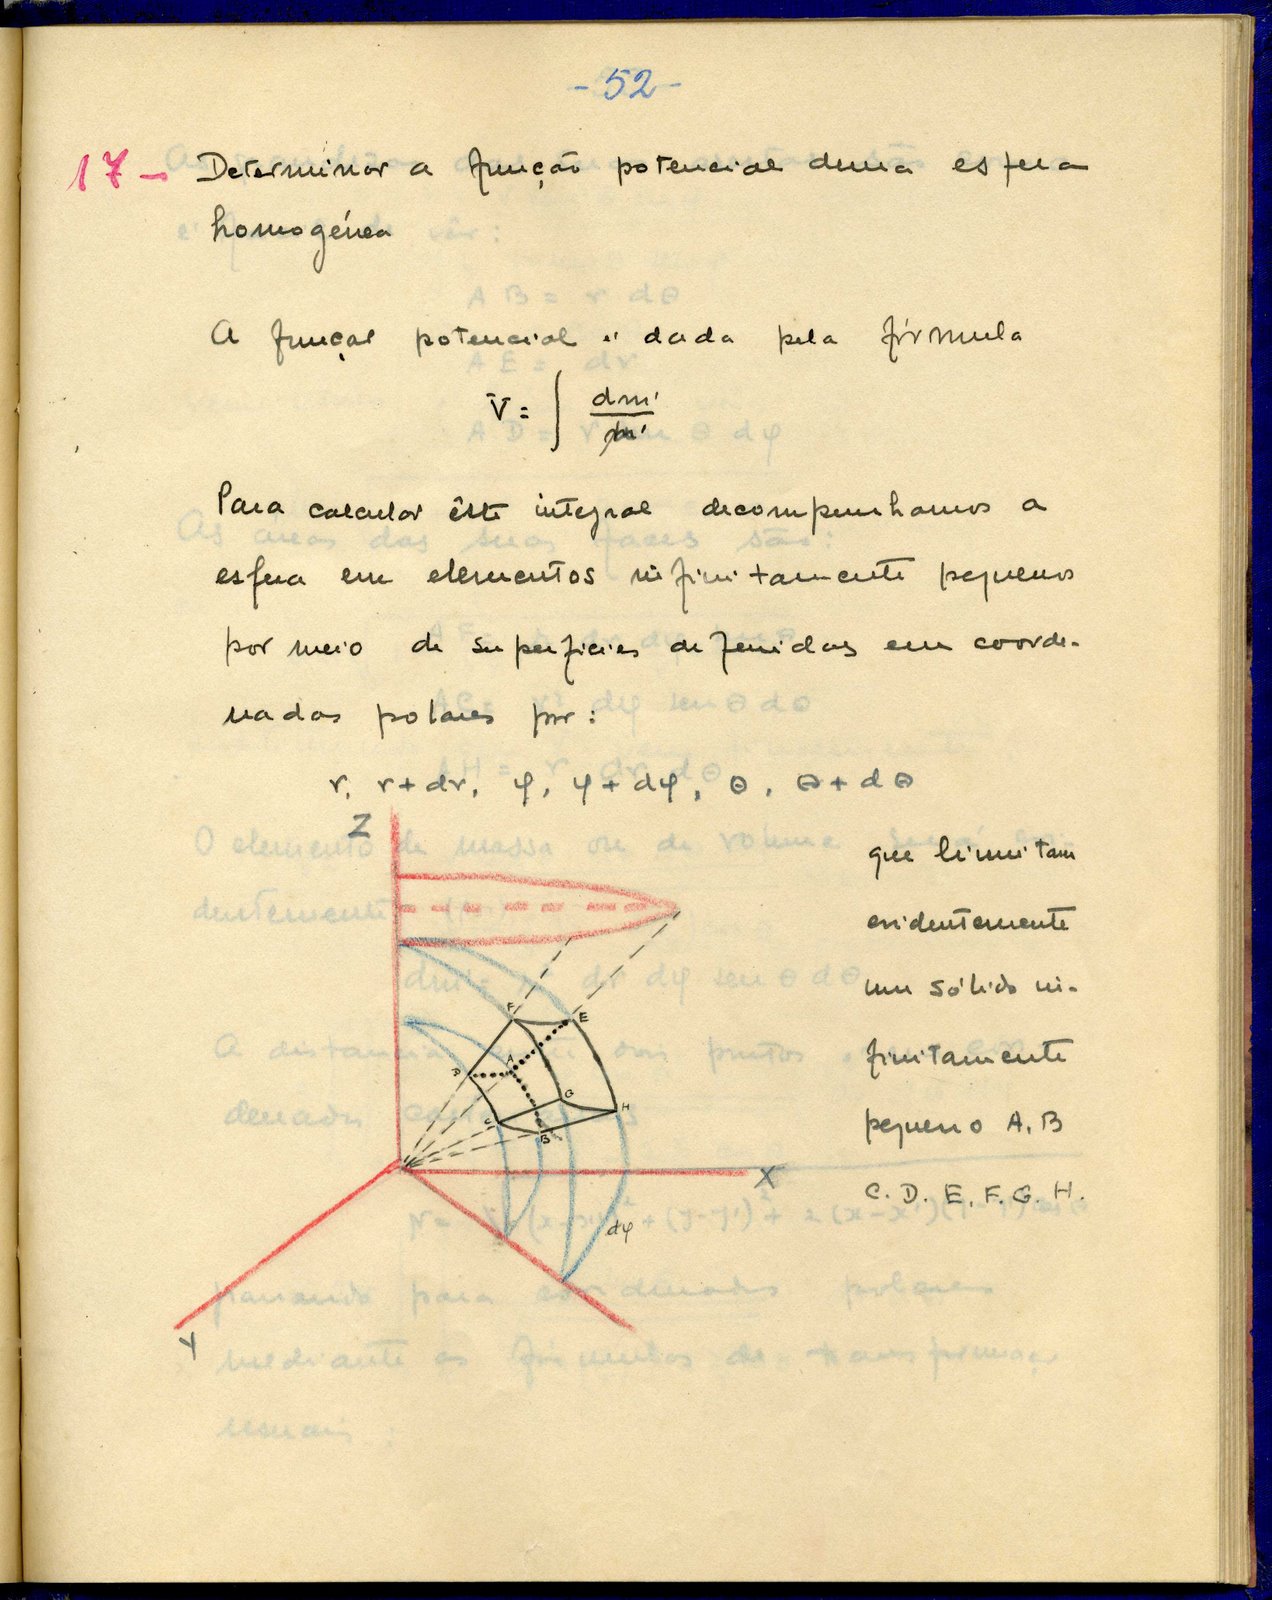 - 52 -
17 - Determinar a função potencial duma esfera
homogénea
A função potencial é dada pela fórmula
V = ∫ dm' / r'
Para calcular êste integral decomponhamos a
esfera em elementos infinitamente pequenos
por meio de superficies definidas em coorde-
nadas polares por:
r, r+dr, φ, φ+dφ, θ, θ+dθ
Z
que limitam
evidentemente
um sólido in-
finitamente
pequeno A. B
C. D. E. F. G. H.
F E
D A
G H
C B
X
dφ
Y